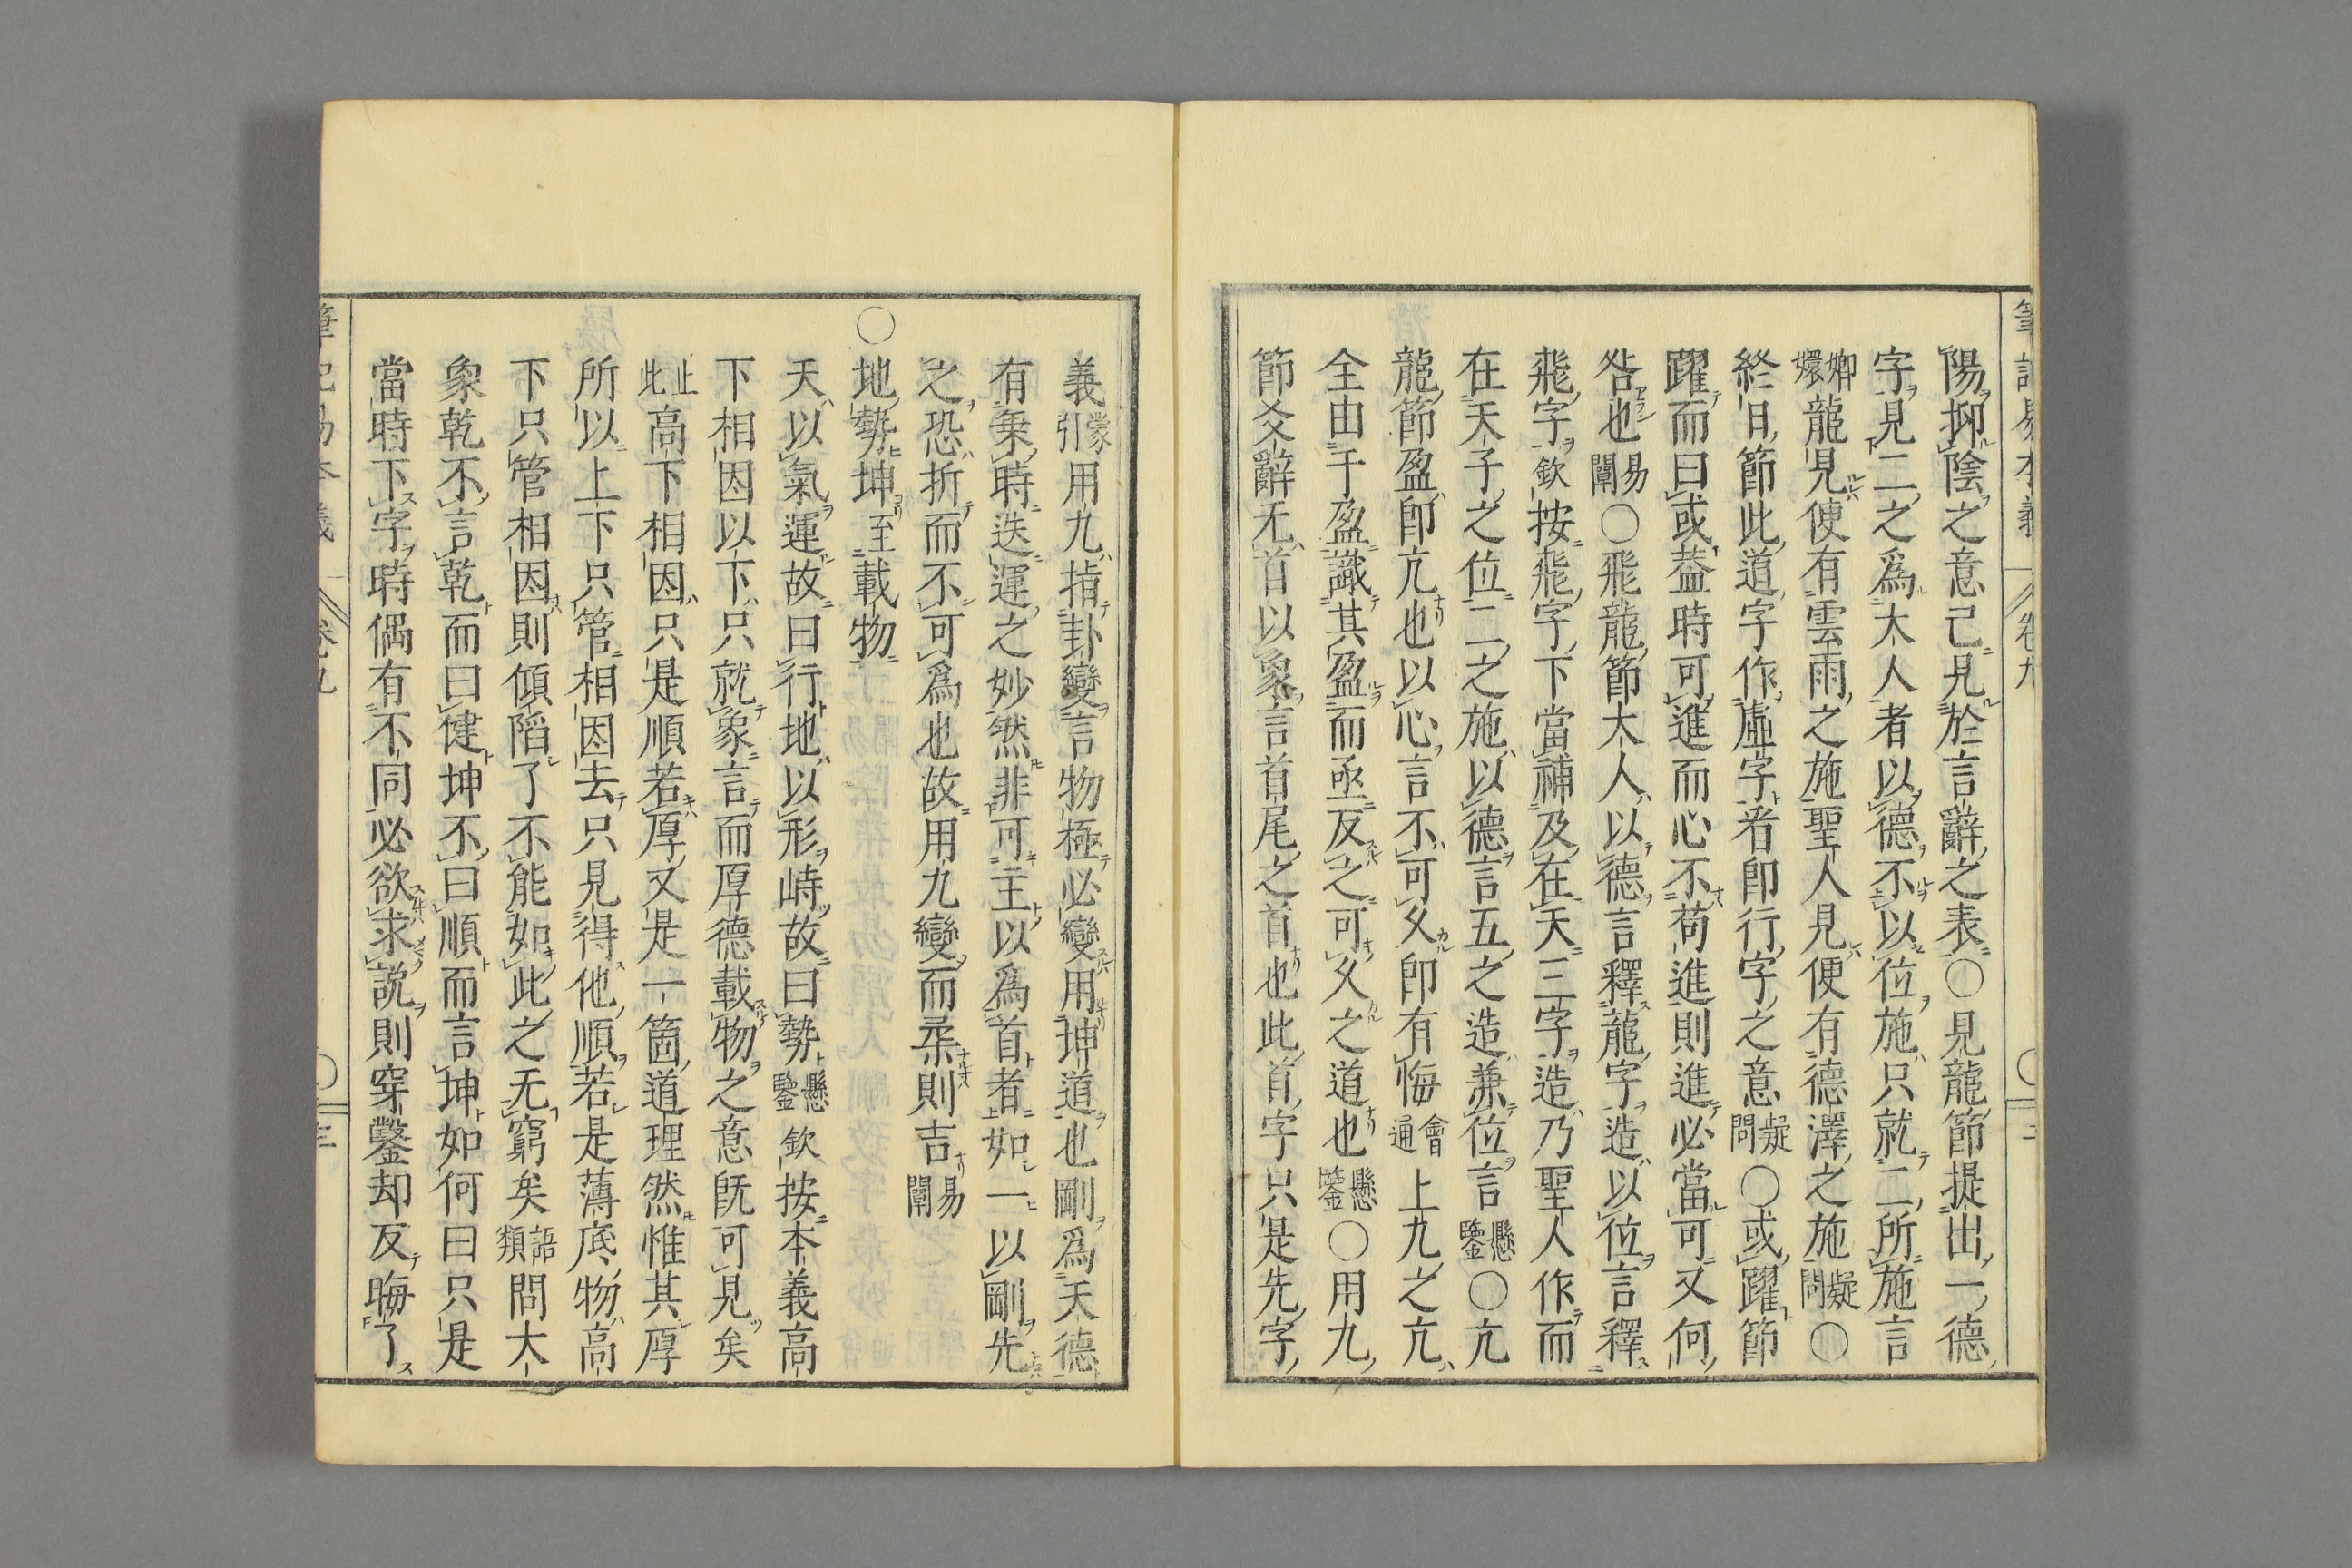 陽抑陰之意已見於言辭之表○見龍節提出一德
字見二之爲大人者以德不以位施只就二所施言
嫏嬛龍見便有雲雨之施聖人見便有德澤之施疑問○
終日節此道字作虛字看即行字之意疑問○或躍節
躍而曰或葢時可進而心不苟進則進必當可又何
咎也易闡○飛龍節大人以德言釋龍字造以位言釋
飛字欽按飛字下當補及在天三字造乃聖人作而
在天子之位二之施以德言五之造兼位言懸鑒○亢
龍節盈即亢也以心言不可久即有悔會通上九之亢
全由于盈識其盈而亟反之可久之道也懸鑒○用九
節爻辭无首以象言首尾之首也此首字只是先字
義蒙引用九指卦變言物極必變用坤道也剛爲天德
有乗時迭運之妙然非可主以爲首者如一以剛先
之恐折而不可爲也故用九變而柔則吉易闡
○地勢坤至載物
天以氣運故曰行地以形峙故曰勢懸鑒欽按本義高
下相因以下只就象言而厚德載物之意既可見矣
止此高下相因只是順若厚又是一箇道理然惟其厚
所以上下只管相因去只見得他順若是薄底物高
下只管相因則傾陷了不能如此之无窮矣語類問大
象乾不言乾而曰健坤不曰順而言坤如何曰只是
當時下字時偶有不同必欲求說則穿鑿却反晦了